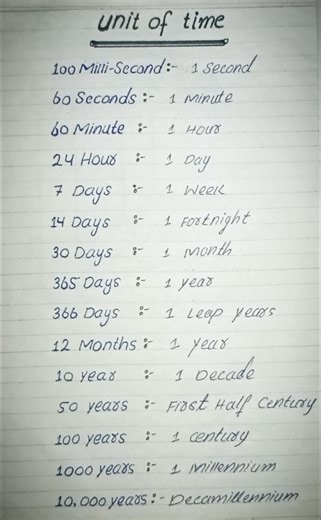 unit of time
100 Milli-Second:- 1 Second
60 Seconds :- 1 Minute
60 Minute :- 1 Hour
24 Hour :- 1 Day
7 Days :- 1 Week
14 Days :- 1 Fortnight
30 Days :- 1 Month
365 Days :- 1 year
366 Days :- 1 Leap years
12 Months :- 1 year
10 year :- 1 Decade
50 years :- First Half Century
100 years :- 1 century
1000 years :- 1 Millennium
10,000 years :- Decamillennium